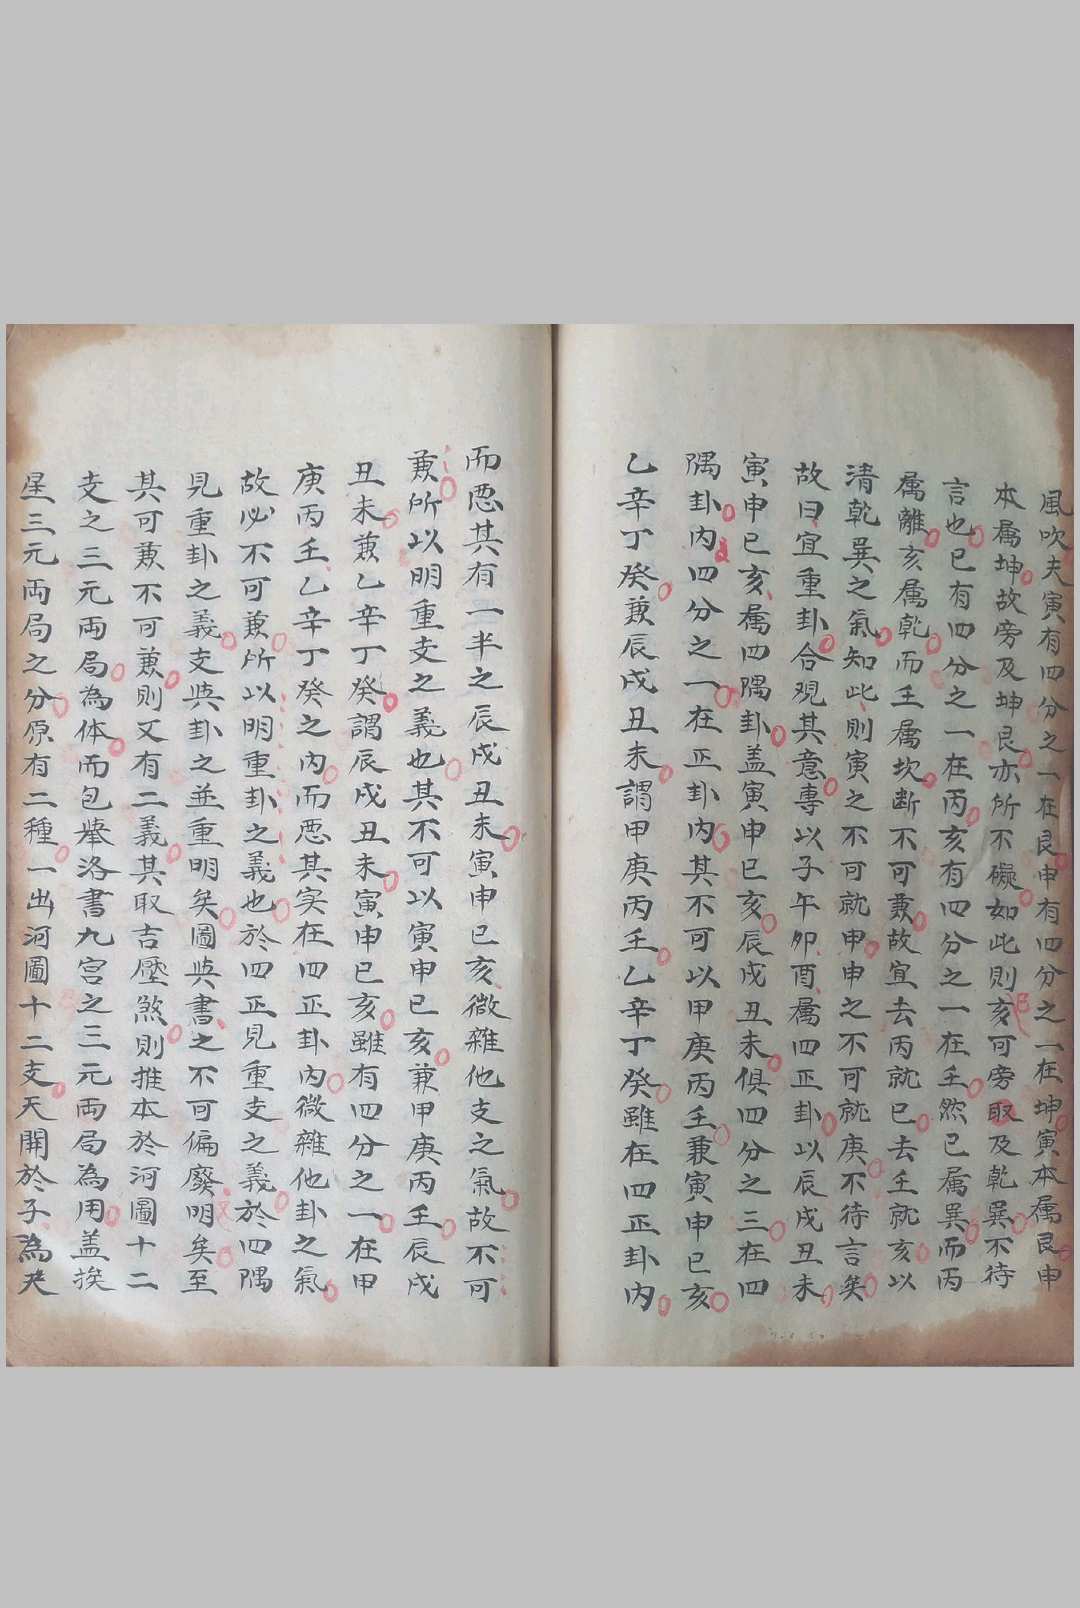 風吹夫寅有四分之一在艮申有四分之一在坤寅本属艮申
本属坤故旁及坤艮亦所不礙如此則亥可旁取及乾巽不待
言也巳有四分之一在丙亥有四分之一在壬然巳属巽而丙
属離亥属乾而壬属坎断不可兼故宜去丙就巳去壬就亥以
清乾巽之氣知此則寅之不可就甲申之不可就庚不待言矣
故曰宜重卦合观其意專以子午卯酉属四正卦以辰戌丑未
寅申巳亥属四隅卦盖寅申巳亥辰戌丑未俱四分之三在四
隅卦内四分之一在正卦内其不可以甲庚丙壬兼寅申巳亥
乙辛丁癸兼辰戌丑未謂甲庚丙壬乙辛丁癸雖在四正卦内
而悪其有一半之辰戌丑未寅申巳亥微雜他支之氣故不可
兼所以明重支之義也其不可以寅申巳亥兼甲庚丙壬辰戌
丑未兼乙辛丁癸謂辰戌丑未寅申巳亥雖有四分之一在甲
庚丙壬乙辛丁癸之内而悪其实在四正卦内微雜他卦之氣
故必不可兼所以明重卦之義也於四正見重支之義於四隅
見重卦之義支與卦之並重明矣圖與書之不可偏廢明矣至
其可兼不可兼則又有二義其取吉壓煞則推本於河圖十二
支之三元両局為体而包舉洛書九宮之三元両局為用盖挨
星三元両局之分原有二種一出河圖十二支天開於子為天